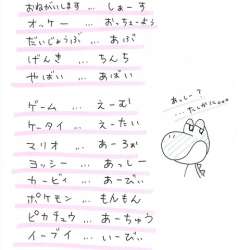 おねがいします … しぁーす
オッケー … おっちょーよう
だいじょうぶ … あぶ
げんき … ちんち
やばい … あばい
ゲーム … えーむ
ケータイ … えーたい
マリオ … あーろぉ
ヨッシー … あっしー
カービィ … あーびぃ
ポケモン … もんもん
ピカチュウ … あーちゅう
イーブイ … いーびぃ
あっしー？
…たしかに…